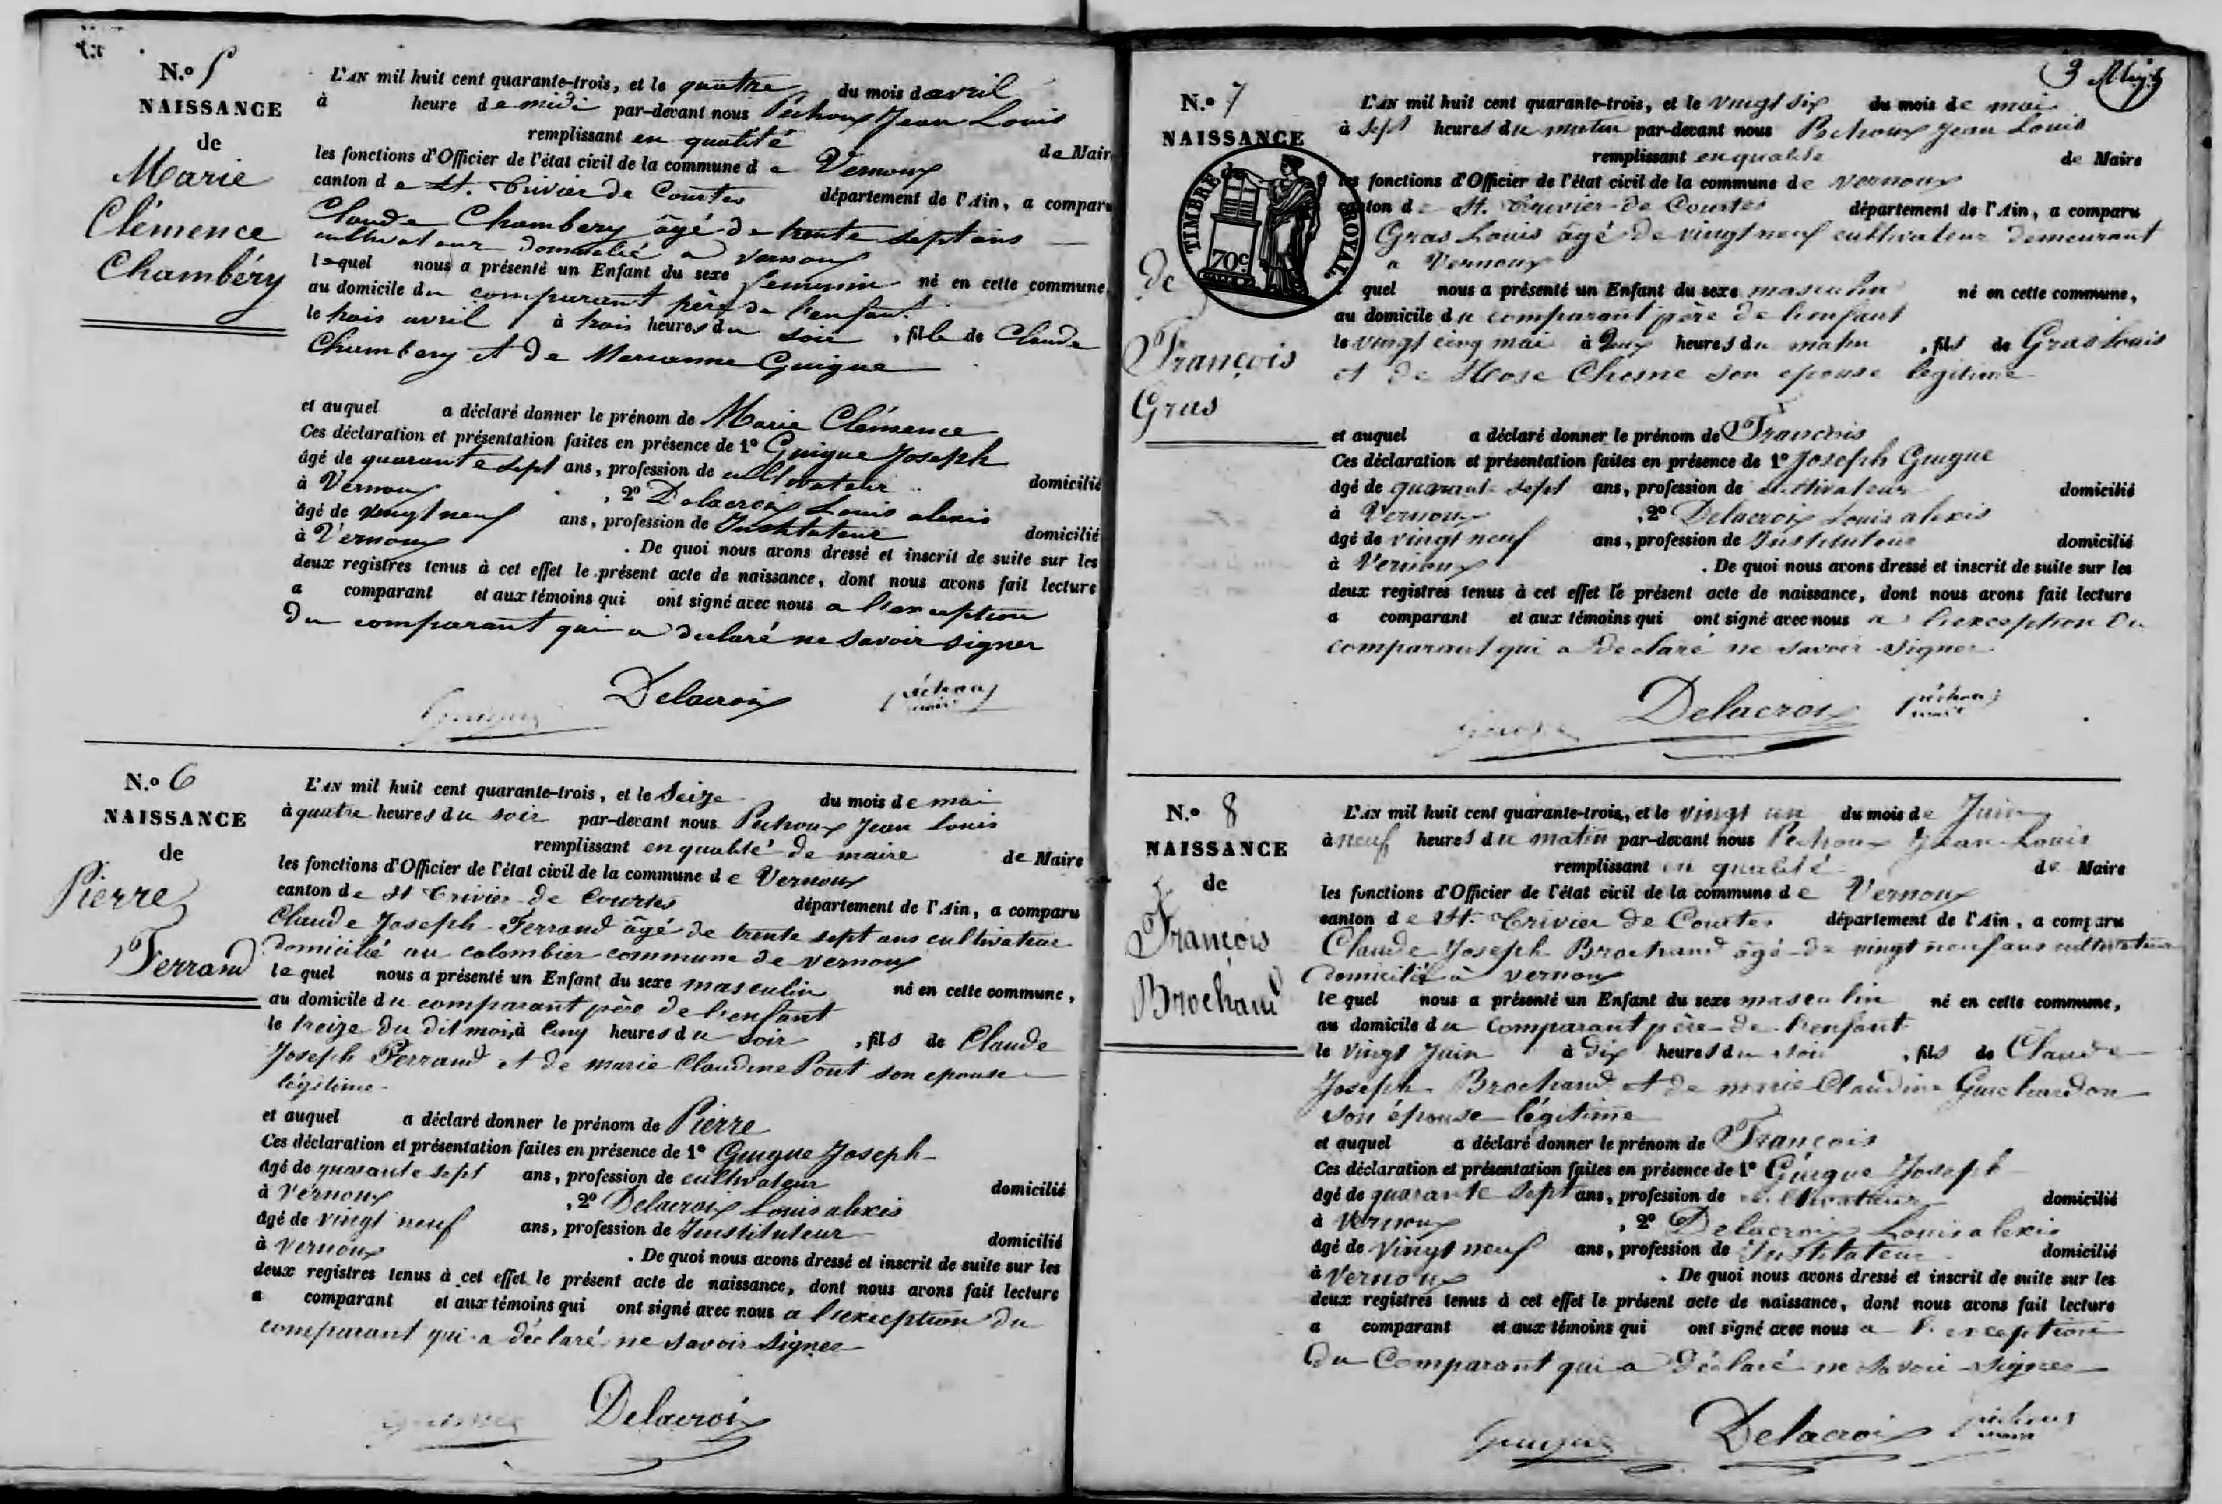 N.o 5
NAISSANCE
de
Marie
Clémence
Chambéry
L'AN mil huit cent quarante-trois, et le quatre du mois d avril
à heure de midi par-devant nous Péchoux Jean Louis
remplissant en qualité de Maire
les fonctions d'Officier de l'état civil de la commune de Vernoux
canton de St. Trivier de Courtes département de l'Ain, a comparu
Claude Chambéry âgé de trente sept ans
cultivateur domicilié a Vernoux
lequel nous a présenté un Enfant du sexe feminin né en cette commune
au domicile du comparant père de l'enfant
le trois avril à trois heures du soir, fille de Claude
Chambery et de Marianne Guigue
et auquel a déclaré donner le prénom de Marie Clémence
Ces déclaration et présentation faites en présence de 1º Guigue Joseph
âgé de quarante sept ans, profession de cultivateur domicilié
à Vernoux, 2º Delacroix Louis alexis
âgé de vingt neuf ans, profession de Instituteur domicilié
à Vernoux. De quoi nous avons dressé et inscrit de suite sur les
deux registres tenus à cet effet le présent acte de naissance, dont nous avons fait lecture
a comparant et aux témoins qui ont signé avec nous a l'exception
Du comparant qui a déclaré ne savoir signer
Guigue Delacroix péchoux
maire
N.o 6
NAISSANCE
de
Pierre
Ferrand
L'AN mil huit cent quarante-trois, et le Seize du mois de mai
à quatre heures du soir par-devant nous Péchoux Jean Louis
remplissant en qualité de maire de Maire
les fonctions d'Officier de l'état civil de la commune de Vernoux
canton de St Trivier de Courtes département de l'Ain, a comparu
Claude Joseph Ferrand âgé de trente sept ans cultivateur
domicilié au colombier commune de vernoux
le quel nous a présenté un Enfant du sexe masculin né en cette commune,
au domicile du comparant père de l'enfant
le treize du dit mois, à Cinq heures du soir, fils de Claude
Joseph Ferrand et de marie Claudine Pont son epouse
légitime
et auquel a déclaré donner le prénom de Pierre
Ces déclaration et présentation faites en présence de 1º Guigue Joseph
âgé de quarante sept ans, profession de cultivateur domicilié
à Vernoux, 2º Delacroix Louis alexis
âgé de vingt neuf ans, profession de Instituteur domicilié
à Vernoux. De quoi nous avons dressé et inscrit de suite sur les
deux registres tenus à cet effet le présent acte de naissance, dont nous avons fait lecture
a comparant et aux témoins qui ont signé avec nous a l'exception du
comparant qui a déclaré ne savoir signer
Delacroix
3
N.o 7
NAISSANCE
TIMBRE ROYAL
70c
de
François
Gras
L'AN mil huit cent quarante-trois, et le vingt six du mois de mai
à sept heures du matin par-devant nous Péchoux Jean Louis
remplissant en qualité de Maire
les fonctions d'Officier de l'état civil de la commune de vernoux
canton de St. Trivier de Courtes département de l'Ain, a comparu
Gras Louis âgé de vingt neuf cultivateur demeurant
a Vernoux
quel nous a présenté un Enfant du sexe masculin né en cette commune,
au domicile du comparant père de l'enfant
le vingt cinq mai à Deux heures du matin, fils de Gras Louis
et de Rose Chesne son epouse légitime
et auquel a déclaré donner le prénom de François
Ces déclaration et présentation faites en présence de 1º Joseph Guigue
âgé de quarante sept ans, profession de cultivateur domicilié
à Vernoux, 2º Delacroix Louis alexis
âgé de vingt neuf ans, profession de Instituteur domicilié
à Vernoux. De quoi nous avons dressé et inscrit de suite sur les
deux registres tenus à cet effet le présent acte de naissance, dont nous avons fait lecture
a comparant et aux témoins qui ont signé avec nous a l'exception Du
comparant qui a déclaré ne savoir signer
Delacroix péchoux
maire
N.o 8
NAISSANCE
de
François
Brochand
L'AN mil huit cent quarante-trois, et le vingt un du mois de Juin
à neuf heures du matin par-devant nous Péchoux Jean Louis
remplissant en qualité de Maire
les fonctions d'Officier de l'état civil de la commune de Vernoux
canton de St. Trivier de Courtes département de l'Ain, a comparu
Claude Joseph Brochand âgé de vingt neuf ans cultivateur
Domicilié à vernoux
lequel nous a présenté un Enfant du sexe masculin né en cette commune,
au domicile du comparant père de l'enfant
le vingt Juin à Dix heures du soir, fils de Claude
Joseph Brochand et de marie Claudine Guichardon
son épouse légitime
et auquel a déclaré donner le prénom de François
Ces déclaration et présentation faites en présence de 1º Guigue Joseph
âgé de quarante sept ans, profession de cultivateur domicilié
à Vernoux, 2º Delacroix Louis alexis
âgé de vingt neuf ans, profession de Instituteur domicilié
à Vernoux. De quoi nous avons dressé et inscrit de suite sur les
deux registres tenus à cet effet le présent acte de naissance, dont nous avons fait lecture
a comparant et aux témoins qui ont signé avec nous a l'exception
Du Comparant qui a déclaré ne savoir signer
Guigue Delacroix péchoux
maire